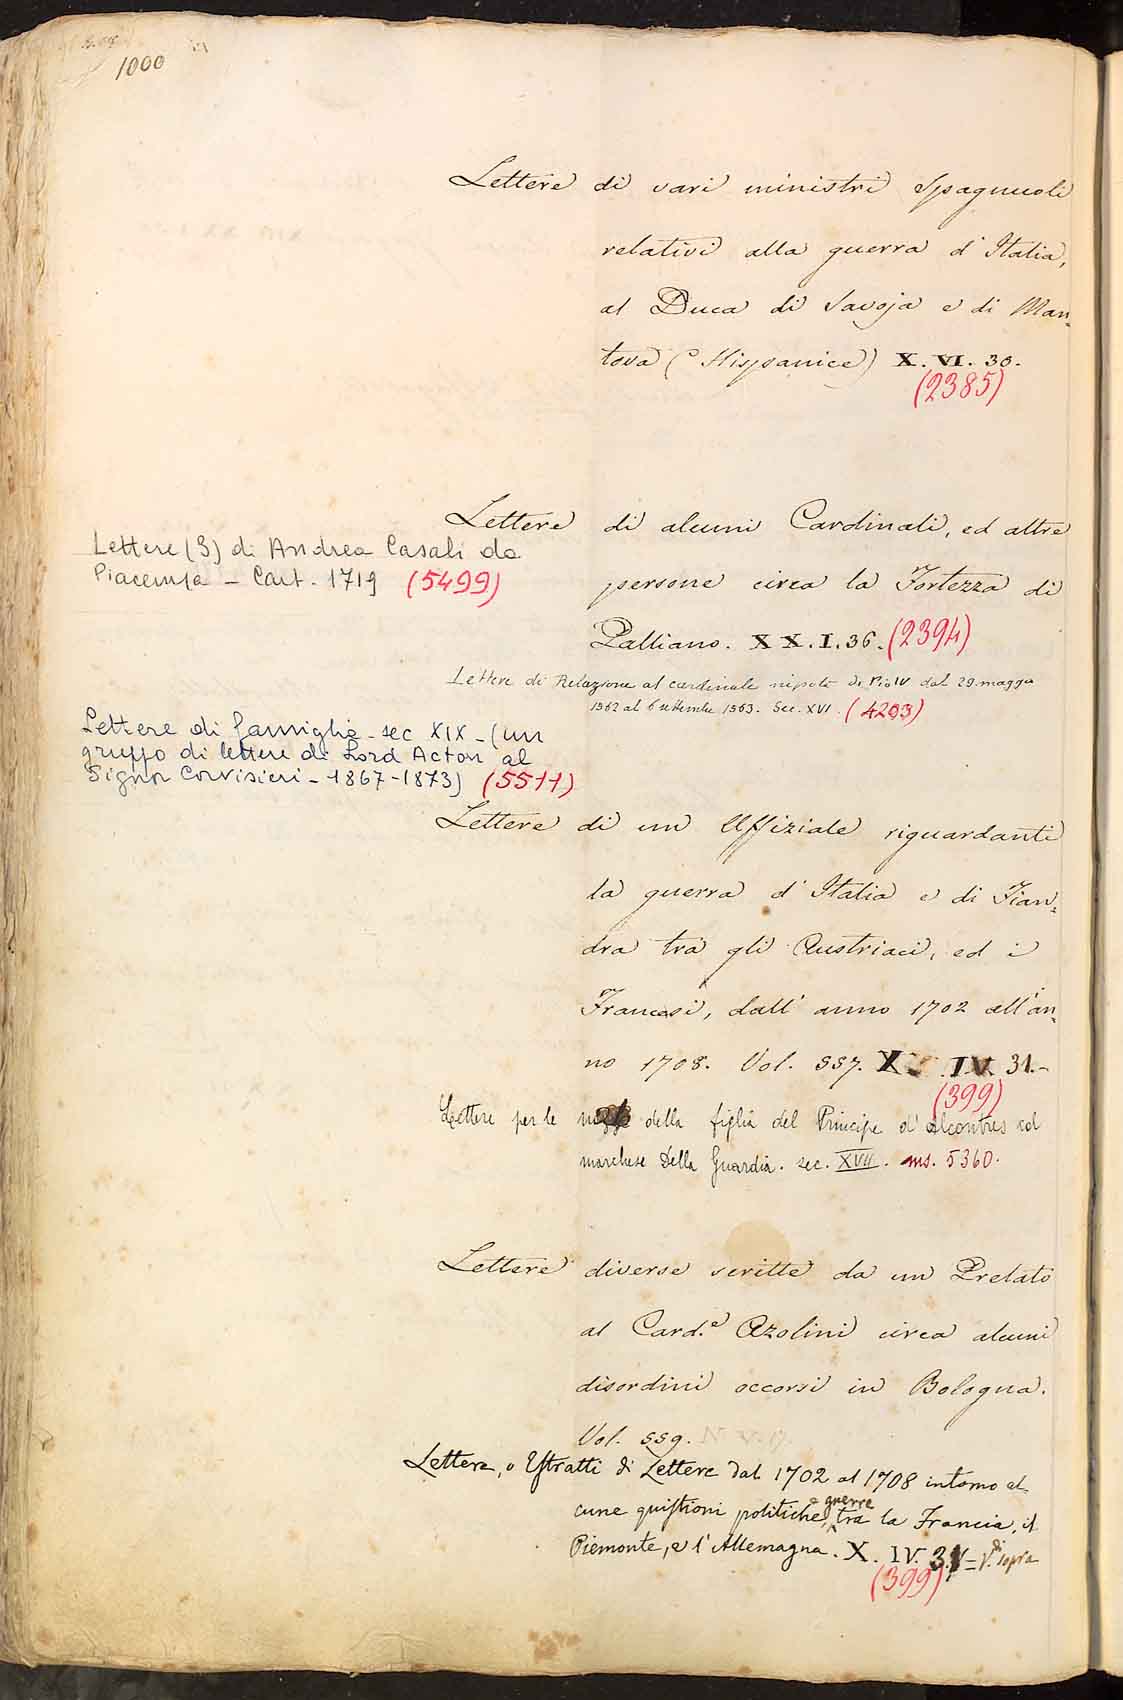 1000
Lettere di vari ministri Spagnuoli
relativi alla guerra d'Italia,
al Duca di Savoja e di Man=
tova (Hispanice) X. VI. 30.
(2385)
Lettere di alcuni Cardinali, ed altre
persone circa la Fortezza di
Palliano. XX. I. 36. (2394)
Lettere (3) di Andrea Casali da
Piacenza - Cart. 1719 (5499)
Lettere di Relazione al cardinale nipote di Pio IV dal 29 maggio
1562 al 6 settembre 1563. Sec. XVI. (4203)
Lettere di famiglie - sec XIX - (un
gruppo di lettere di Lord Acton al
Signor Corvisieri - 1867-1873) (5511)
Lettere di un Uffiziale riguardanti
la guerra d'Italia e di Fian=
dra tra gli Austriaci, ed i
Francesi, dall'anno 1702 all'an=
no 1708. Vol. 557. X. IV. 31.-
(399)
Lettere per le nozze della figlia del Principe d'Alcontres col
marchese Della Guardia. sec. XVII. ms. 5360.
Lettere diverse scritte da un Prelato
al Card.e Azolini circa alcuni
disordini occorsi in Bologna.
Vol. 559.
Lettere, o Estratti di Lettere dal 1702 al 1708 intorno al-
cune quistioni politiche, e guerre tra la Francia, il
Piemonte, e l'Allemagna. X. IV. 31 = V. di sopra
(399)